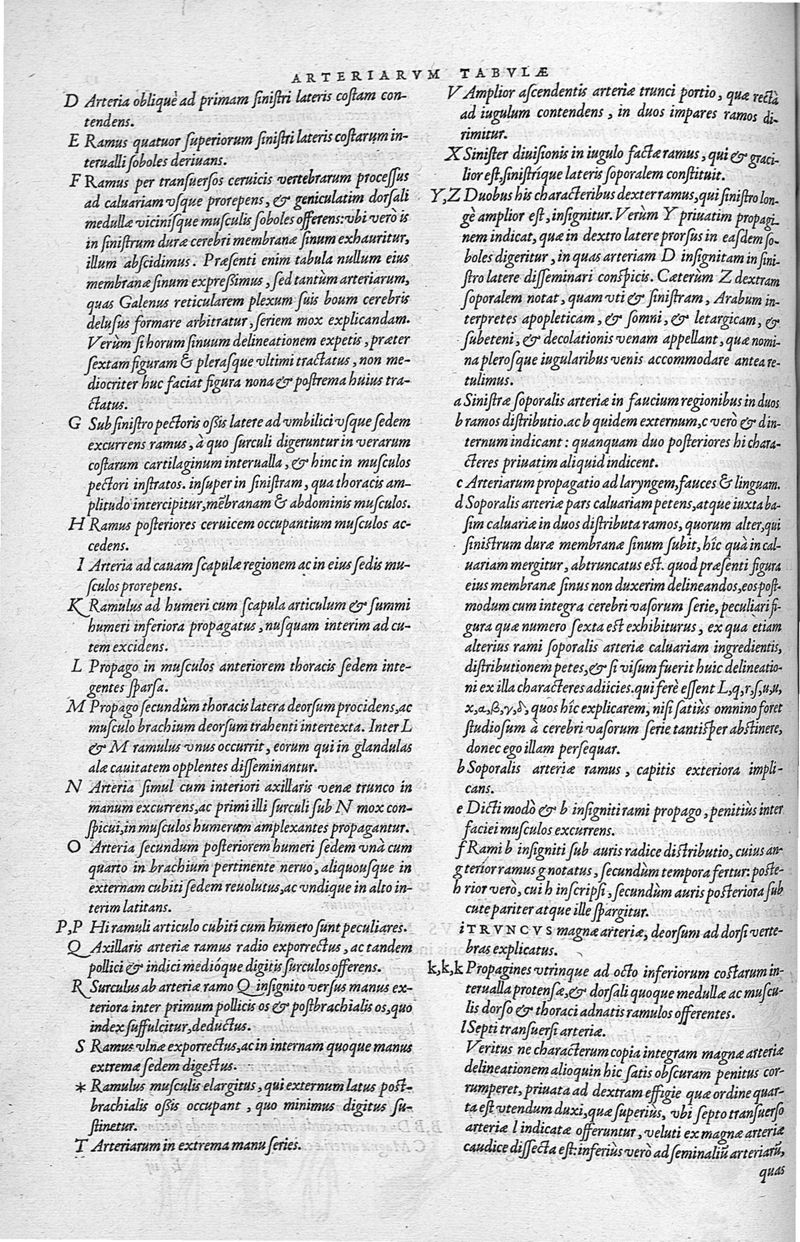 ARTERIARVM TABVLÆ
D Arteria obliquè ad primam sinistri lateris costam con-
tendens.
E Ramus quatuor superiorum sinistri lateris costarum in-
terualli soboles deriuans.
F Ramus per transuersos ceruicis vertebrarum processus
ad caluariam vsque prorepens, & geniculatim dorsali
medullæ vicinisque musculis soboles offerens: vbi verò is
in sinistrum duræ cerebri membranæ sinum exhauritur,
illum abscidimus. Præsenti enim tabula nullum eius
membranæ sinum expreßimus, sed tantùm arteriarum,
quas Galenus reticularem plexum suis boum cerebris
delusus formare arbitratur, seriem mox explicandam.
Verùm si horum sinuum delineationem expetis, præter
sextam figuram & plerasque vltimi tractatus, non me-
diocriter huc faciat figura nona & postrema huius tra-
ctatus.
G Sub sinistro pectoris oßis latere ad vmbilici vsque sedem
excurrens ramus, à quo surculi digeruntur in verarum
costarum cartilaginum interualla, & hinc in musculos
pectori instratos. insuper in sinistram, qua thoracis am-
plitudo intercipitur, mẽbranam & abdominis musculos.
H Ramus posteriores ceruicem occupantium musculos ac-
cedens.
I Arteria ad cauam scapulæ regionem ac in eius sedis mu-
sculos prorepens.
K Ramulus ad humeri cum scapula articulum & summi
humeri inferiora propagatus, nusquam interim ad cu-
tem excidens.
L Propago in musculos anteriorem thoracis sedem inte-
gentes sparsa.
M Propago secundùm thoracis latera deorsum procidens, ac
musculo brachium deorsum trahenti intertexta. Inter L
& M ramulus vnus occurrit, eorum qui in glandulas
alæ cauitatem opplentes disseminantur.
N Arteria simul cum interiori axillaris venæ trunco in
manum excurrens, ac primi illi surculi sub N mox con-
spicui, in musculos humerum amplexantes propagantur.
O Arteria secundum posteriorem humeri sedem vnà cum
quarto in brachium pertinente neruo, aliquousque in
externam cubiti sedem reuolutus, ac vndique in alto in-
terim latitans.
P,P Hi ramuli articulo cubiti cum humero sunt peculiares.
Q Axillaris arteriæ ramus radio exporrectus, ac tandem
pollici & indici medióque digitis surculos offerens.
R Surculus ab arteriæ ramo Q insignito versus manus ex-
teriora inter primum pollicis os & postbrachialis os, quo
index suffulcitur, deductus.
S Ramus vlnæ exporrectus, ac in internam quoque manus
extremæ sedem digestus.
* Ramulus musculis elargitus, qui externum latus post-
brachialis oßis occupant, quo minimus digitus su-
stinetur.
T Arteriarum in extrema manu series.
V Amplior ascendentis arteriæ trunci portio, quæ rectà
ad iugulum contendens, in duos impares ramos di-
rimitur.
X Sinister diuisionis in iugulo factæ ramus, qui & graci-
lior est, sinistrique lateris soporalem constituit.
Y,Z Duobus his characteribus dexter ramus, qui sinistro lon-
gè amplior est, insignitur. Verùm Y priuatim propagi-
nem indicat, quæ in dextro latere prorsus in easdem so-
boles digeritur, in quas arteriam D insignitam in sini-
stro latere disseminari conspicis. Cæterùm Z dextram
soporalem notat, quam vti & sinistram, Arabum in-
terpretes apopleticam, & somni, & letargicam, &
subeteni, & decolationis venam appellant, quæ nomi-
na plerosque iugularibus venis accommodare antea re-
tulimus.
a Sinistræ soporalis arteriæ in faucium regionibus in duos
b ramos distributio. ac b quidem externum, c verò & d in-
ternum indicant: quanquam duo posteriores hi chara-
cteres priuatim aliquid indicent.
c Arteriarum propagatio ad laryngem, fauces & linguam.
d Soporalis arteriæ pars caluariam petens, atque iuxta ba-
sim caluariæ in duos distributa ramos, quorum alter, qui
sinistrum duræ membranæ sinum subit, hîc quà in cal-
uariam mergitur, abtruncatus est. quod præsenti figura
eius membranæ sinus non duxerim delineandos, eos post-
modum cum integra cerebri vasorum serie, peculiari fi-
gura quæ numero sexta est exhibiturus, ex qua etiam
alterius rami soporalis arteriæ caluariam ingredientis,
distributionem petes, & si visum fuerit huic delineatio-
ni ex illa characteres adiicies. qui ferè essent L, q, r, s, u, u,
x, α, β, γ, δ, quos hîc explicarem, nisi satiùs omnino foret
studiosum à cerebri vasorum serie tantisper abstinere,
donec ego illam persequar.
b Soporalis arteriæ ramus, capitis exteriora impli-
cans.
e Dicti modò & b insigniti rami propago, penitiùs inter
faciei musculos excurrens.
f Rami b insigniti sub auris radice distributio, cuius an-
g terior ramus g notatus, secundùm tempora fertur: poste-
h rior verò, cui h inscripsi, secundùm auris posteriora sub
cute pariter atque ille spargitur.
i TRVNCVS magnæ arteriæ, deorsum ad dorsi verte-
bras explicatus.
k,k,k Propagines vtrinque ad octo inferiorum costarum in-
terualla protensæ, & dorsali quoque medullæ ac muscu-
lis dorso & thoraci adnatis ramulos offerentes.
l Septi transuersi arteriæ.
Veritus ne characterum copia integram magnæ arteriæ
delineationem alioquin hîc satis obscuram penitus cor-
rumperet, priuata ad dextram effigie quæ ordine quar-
ta est vtendum duxi, quæ superiùs, vbi septo transuerso
arteriæ l indicatæ offeruntur, veluti ex magnæ arteriæ
caudice dissecta est: inferiùs verò ad seminaliũ arteriarũ,
quas